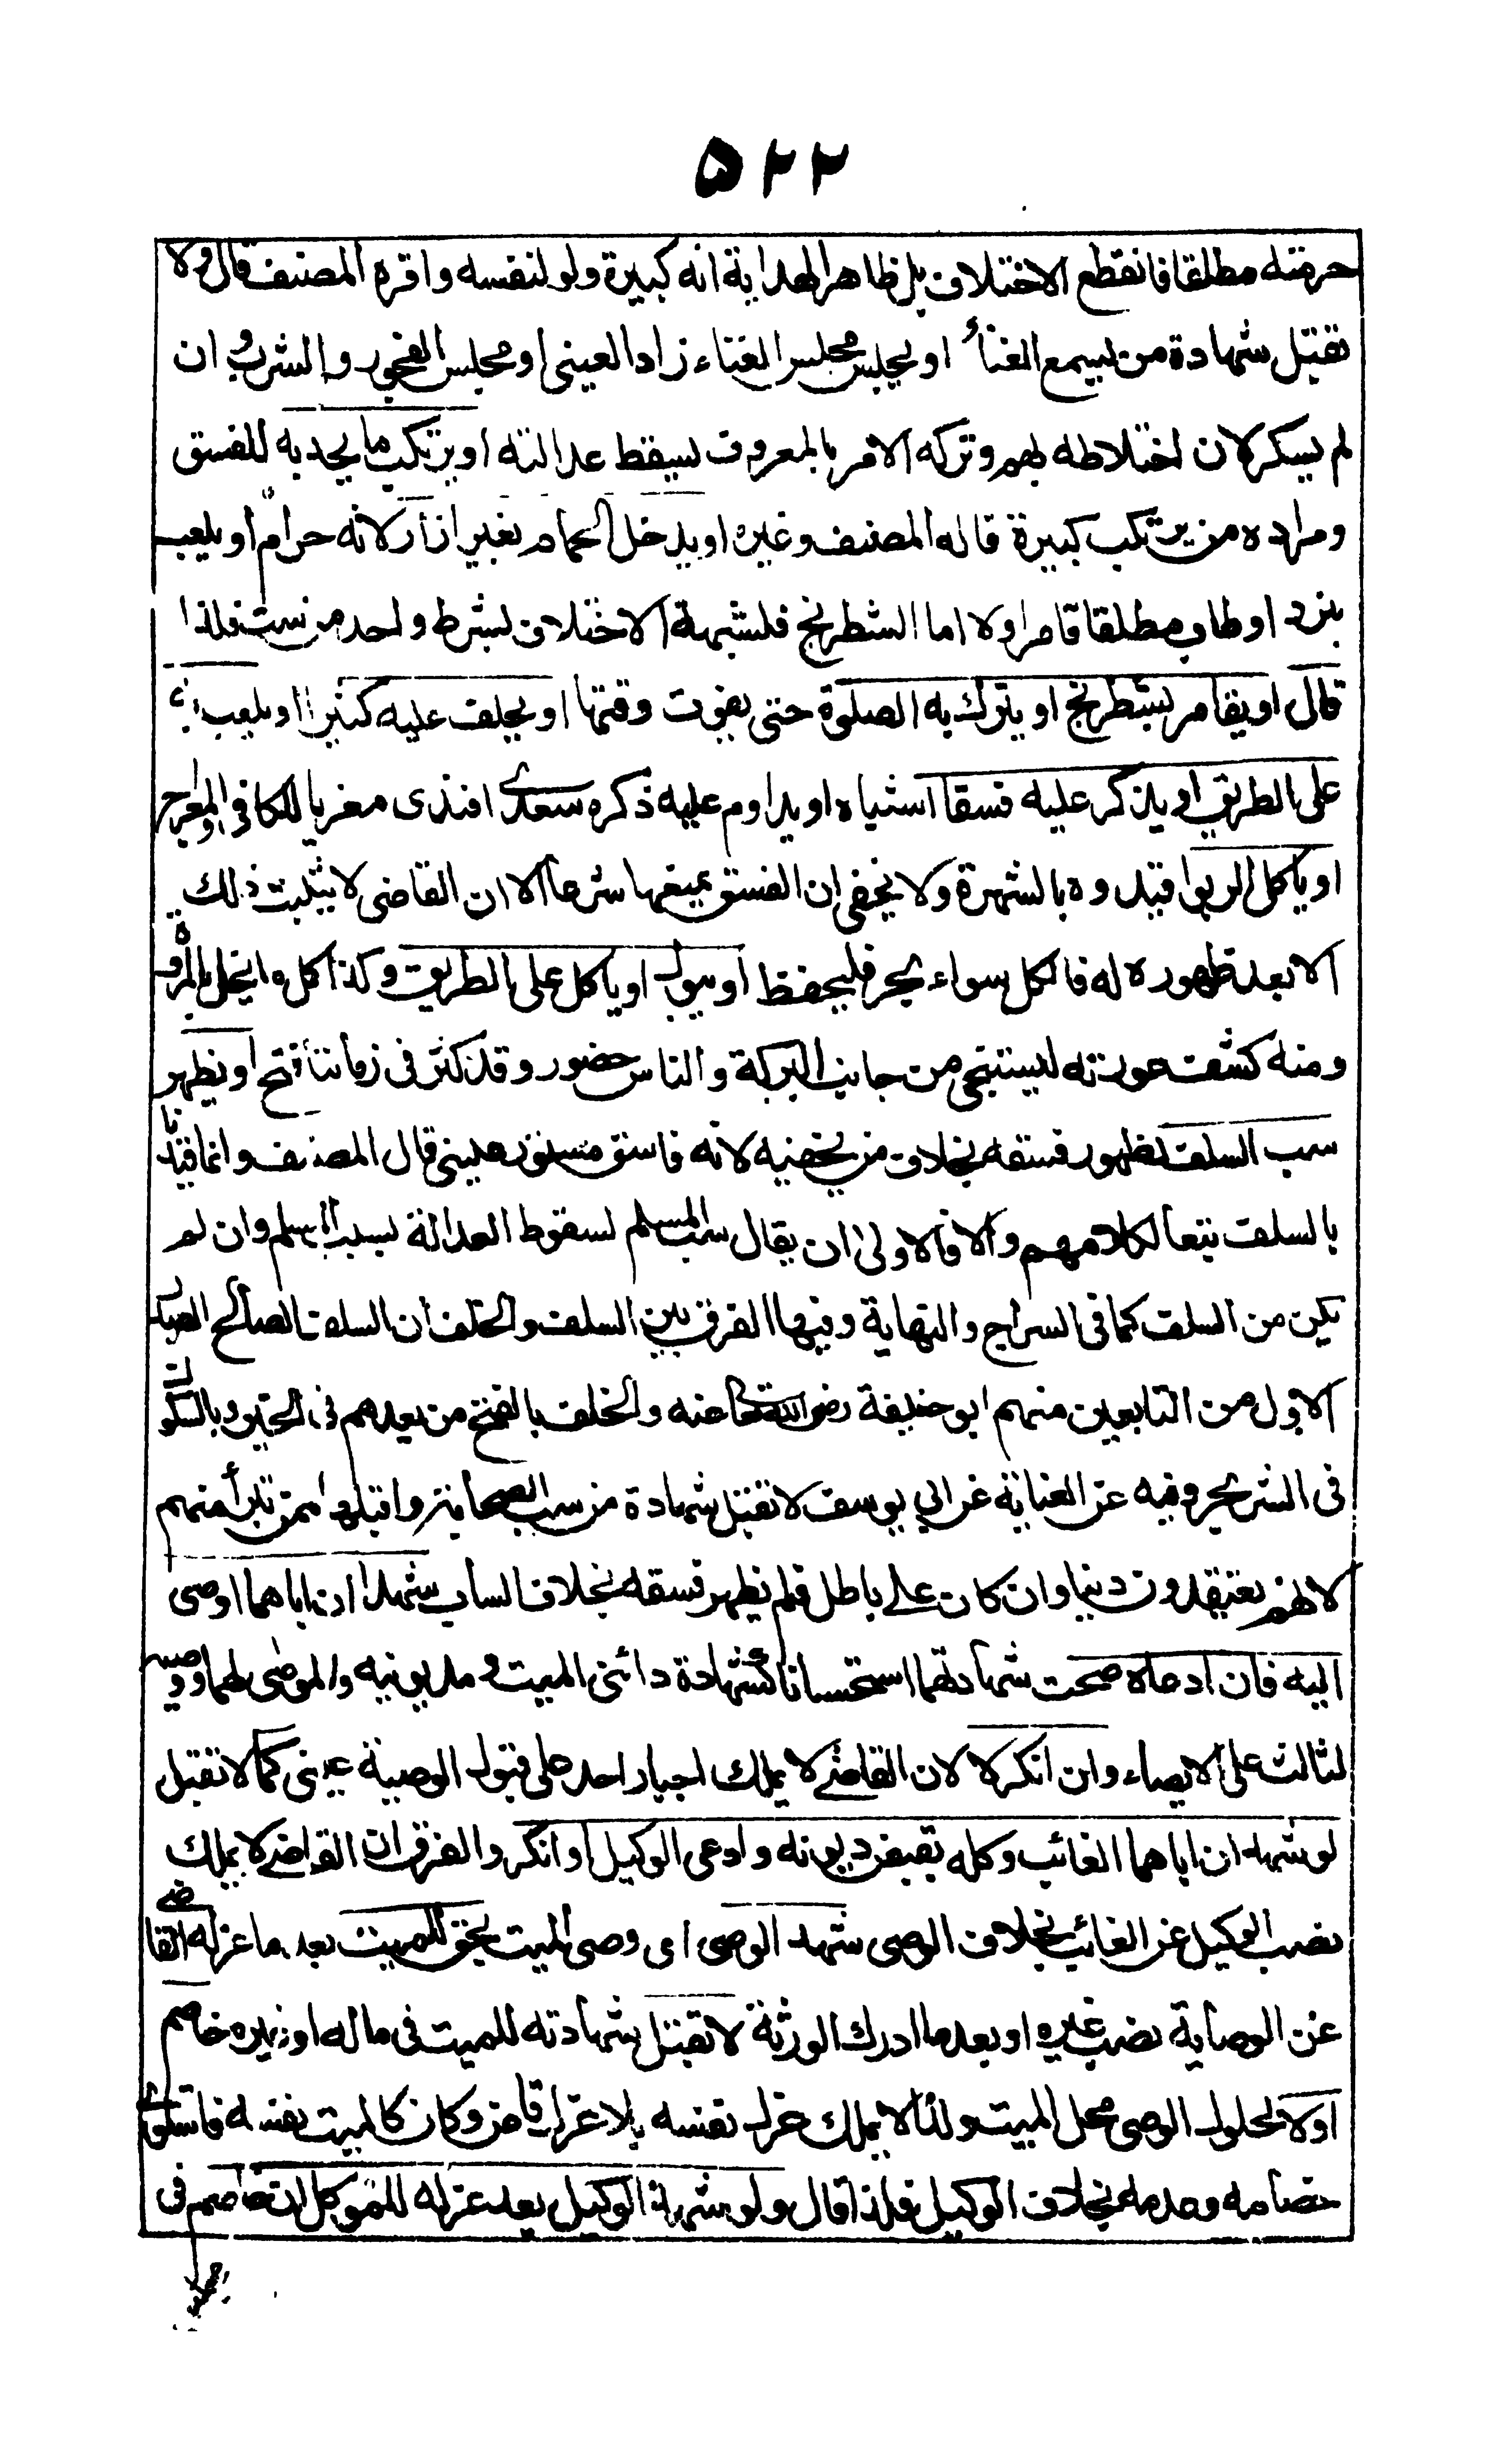 ۵۲۲
حرمته مطلقا فانقطع الاختلاف بل ظاهر الهداية انه كبيرة ولو لنفسه واقره المصنف قال ولا
تقبل شهادة من يسمع الغناء او يجلس مجلس الغناء زاد العينى او مجلس الفجور والشرب وان
لم يسكر لان اختلاطه بهم وتركه الامر بالمعروف يسقط عدالته او يرتكب ما يحد به للفسق
ومراده من يرتكب كبيرة قاله المصنف وغيره او يدخل الحمام بغير ازار لانه حرام او يلعب
بنرد او طاب مطلقا قامر اولا اما الشطرنج فلشبهة الاختلاف بشرط واحد من ست فلذا
قال او يقامر بشطرنج او يترك به الصلوة حتى يفوت وقتها او يحلف عليه كثيرا او يلعب به
على الطريق او يذكر عليه فسقا اشياه او يداوم عليه ذكره سعدى افندى معزيا للكافى والمعراج
او يأكل الربوا قيدوه بالشهرة ولا يخفى ان الفسق يمنعها شرعا الا ان القاضى لا يثبت ذلك
الا بعد ظهوره له فالكل سواء بحر فليحفظ او يبول او يأكل على الطريق وكذا كل ما يخل بالمروة
ومنه كشف عورته ليستنجى من جانب البركة والناس حضور وقد كثر فى زماننا فتح او يظهر
سب السلف لظهور فسقه بخلاف من يخفيه لانه فاسق مستور عينى قال المصنف وانما قيدنا
بالسلف تبعا لكلامهم والا فالاولى ان يقال سب مسلم لسقوط العدالة بسب المسلم وان لم
يكن من السلف كما فى السراج والنهاية وفيها الفرق بين السلف والخلف ان السلف الصالح الصدر
الاول من التابعين منهم ابو حنيفة رضى الله تعا عنه والخلف بالفتح من بعدهم فى الخير وبالسكون
فى الشر بحر وفيه عن العناية عن ابي يوسف لا تقبل شهادة من سب الصحابة واقبلها ممن تبرأ منهم
لانهم يعتقدون دينا وان كان على باطل فلم يظهر فسقه بخلاف الساب شهدا ان اباهما اوصى
اليه فان ادعاه صحت شهادتهما استحسانا كشهادة دائنى الميت ومديونيه والموصى لهما ووصييه
لثالث على الايصاء وان انكر لا لان القاضى لا يملك اجبار احد على قبول الوصية عينى كما لا تقبل
لو شهدا ان اباهما الغائب وكله بقبض ديونه وادعى الوكيل او انكر والفرق ان القاضى لا يملك
نصب الوكيل عن الغائب بخلاف الوصى شهد الوصى اى وصى الميت بحق للميت بعد ما عزله القاضى
عن الوصاية نصب غيره او بعد ما ادرك الورثة لا تقبل شهادته للميت فى ماله او غيره خاصم
اولا لحلول الوصى محل الميت ولذا لا يملك عزل نفسه بلا عزل قاض وكان كالميت نفسه فاستوى
خصامه وعدمه بخلاف الوكيل فلذا قال ولو شهد الوكيل بعد عزله للموكل ان خاصم فى